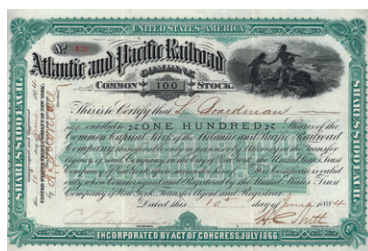 UNITED STATES OF AMERICA
No
Atlantic and Pacific Railroad
COMPANY
COMMON 100 STOCK.
SHARES $100 EACH.
SHARES $100 EACH.
This is to Certify that L. Boardman
is entitled to ONE HUNDRED Shares of the
Common Capital Stock of the Atlantic and Pacific Railroad
Company transferable only on the Transfer
Agency of said Company in the City of New York, the United States Trust
Company of New York, upon surrender of this Certificate, is valid
only when Countersigned and Registered by the United States Trust
Company of New York, Transfer Agent and Registrar
Dated this 10th day of June 1884
INCORPORATED BY ACT OF CONGRESS JULY 1866